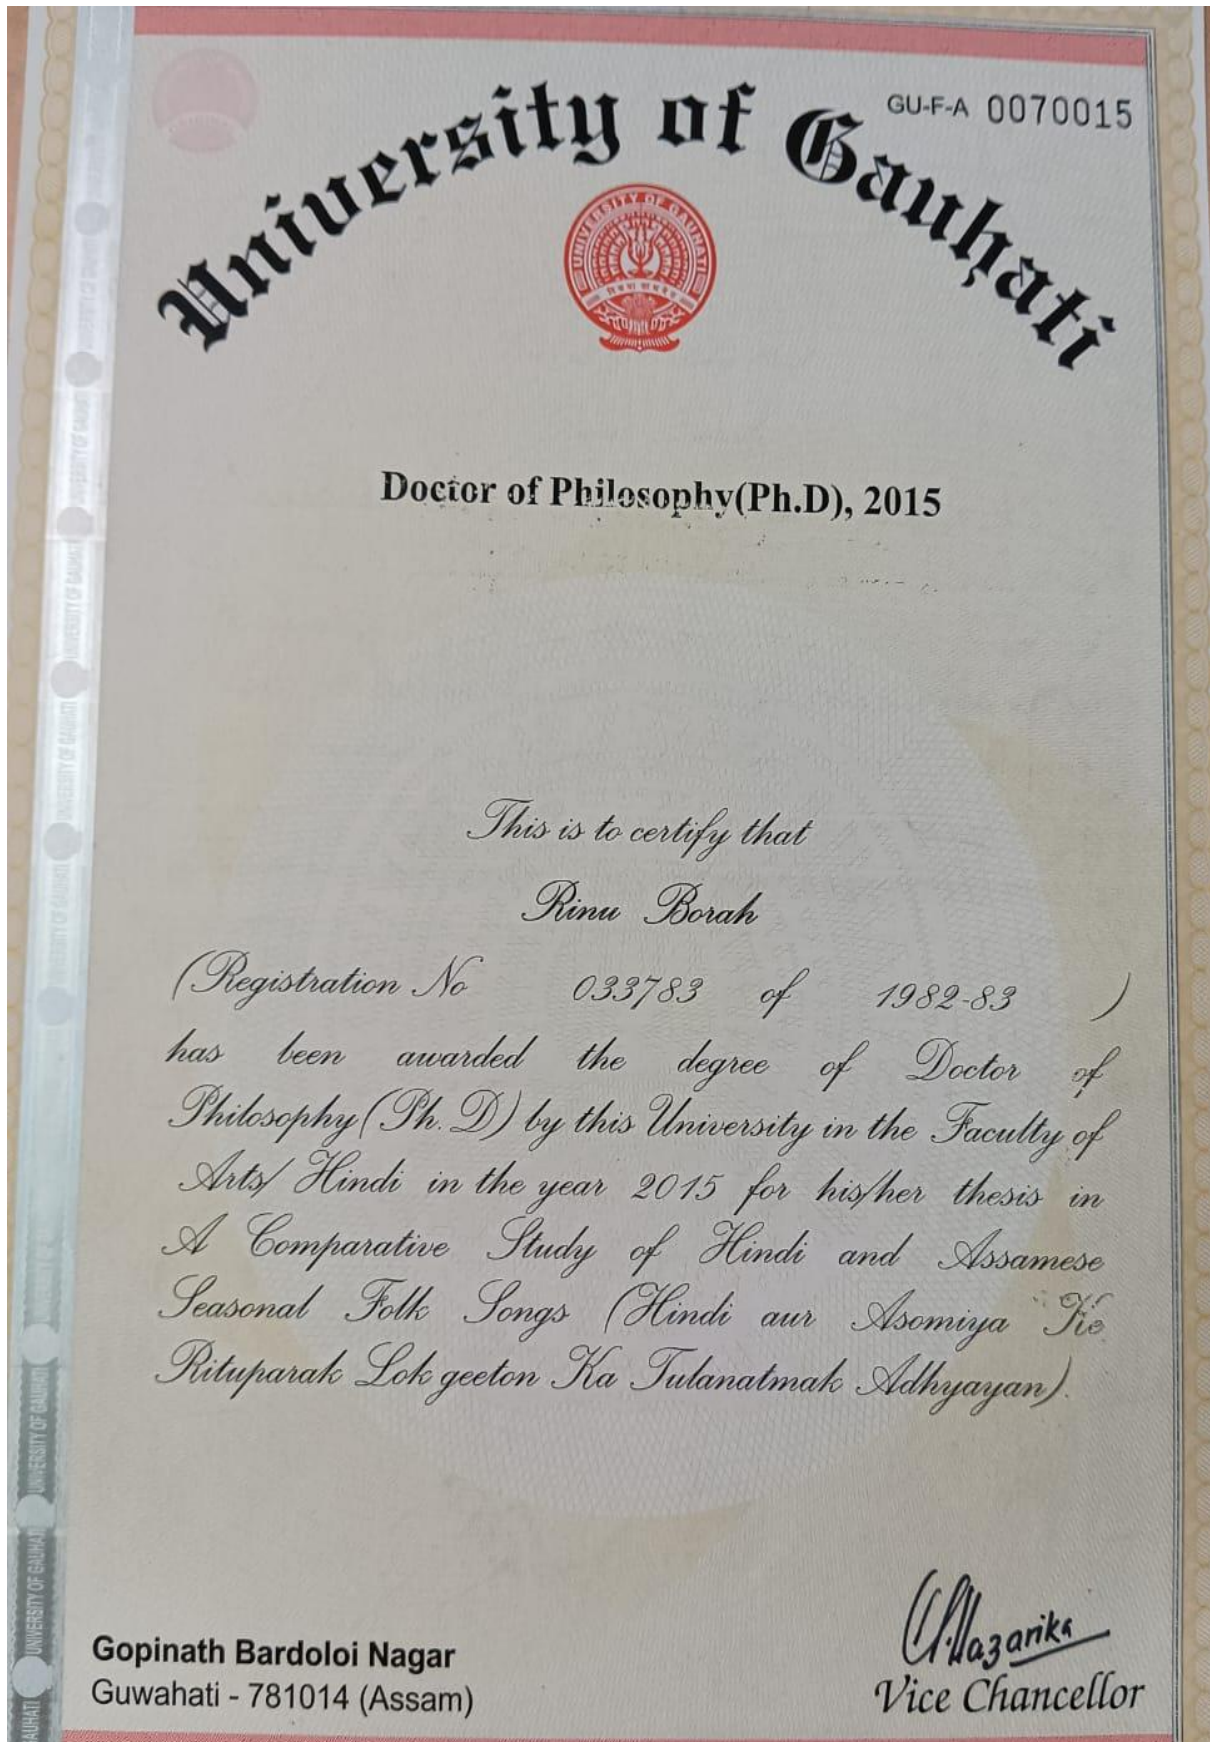 GU-F-A 0070015
University of Gauhati
UNIVERSITY OF GAUHATI
Doctor of Philosophy(Ph.D), 2015
This is to certify that
Rinu Borah
(Registration No 033783 of 1982-83 )
has been awarded the degree of Doctor of
Philosophy(Ph. D) by this University in the Faculty of
Arts/ Hindi in the year 2015 for his/her thesis in
A Comparative Study of Hindi and Assamese
Seasonal Folk Songs (Hindi aur Asomiya Ke
Rituparak Lok geeton Ka Tulanatmak Adhyayan).
Hazarika
Gopinath Bardoloi Nagar
Guwahati - 781014 (Assam)
Vice Chancellor
UNIVERSITY OF GAUHATI
UNIVERSITY OF GAUHATI